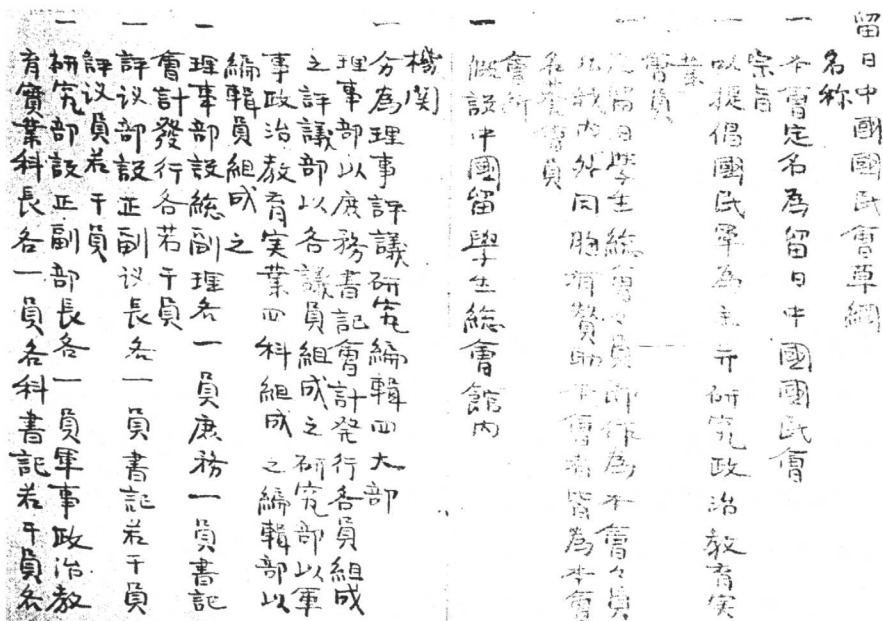 留日中國國民會草綱
名称
一 本會定名為留日中國國民會
宗旨
一 以提倡國民軍為主并研究政治教育実
業
會員
一 凡留日學生総會々員即作為本會々員
一 凡我内外同胞有贊助本會者皆為本會
名誉會員
會所
一 假設中國留學生総會館内
機関
一 分為理事評議研究編輯四大部
理事部以庶務書記會計発行各員組成
之評議部以各議員組成之研究部以軍
事政治教育実業四科組成之編輯部以
編輯員組成之
一 理事部設総副理各一員庶務一員書記
會計發行各若干員
一 評议部設正副议長各一員書記若干員
評议員若干員
一 研究部設正副部長各一員軍事政治教
育實業科長各一員各科書記若干員各